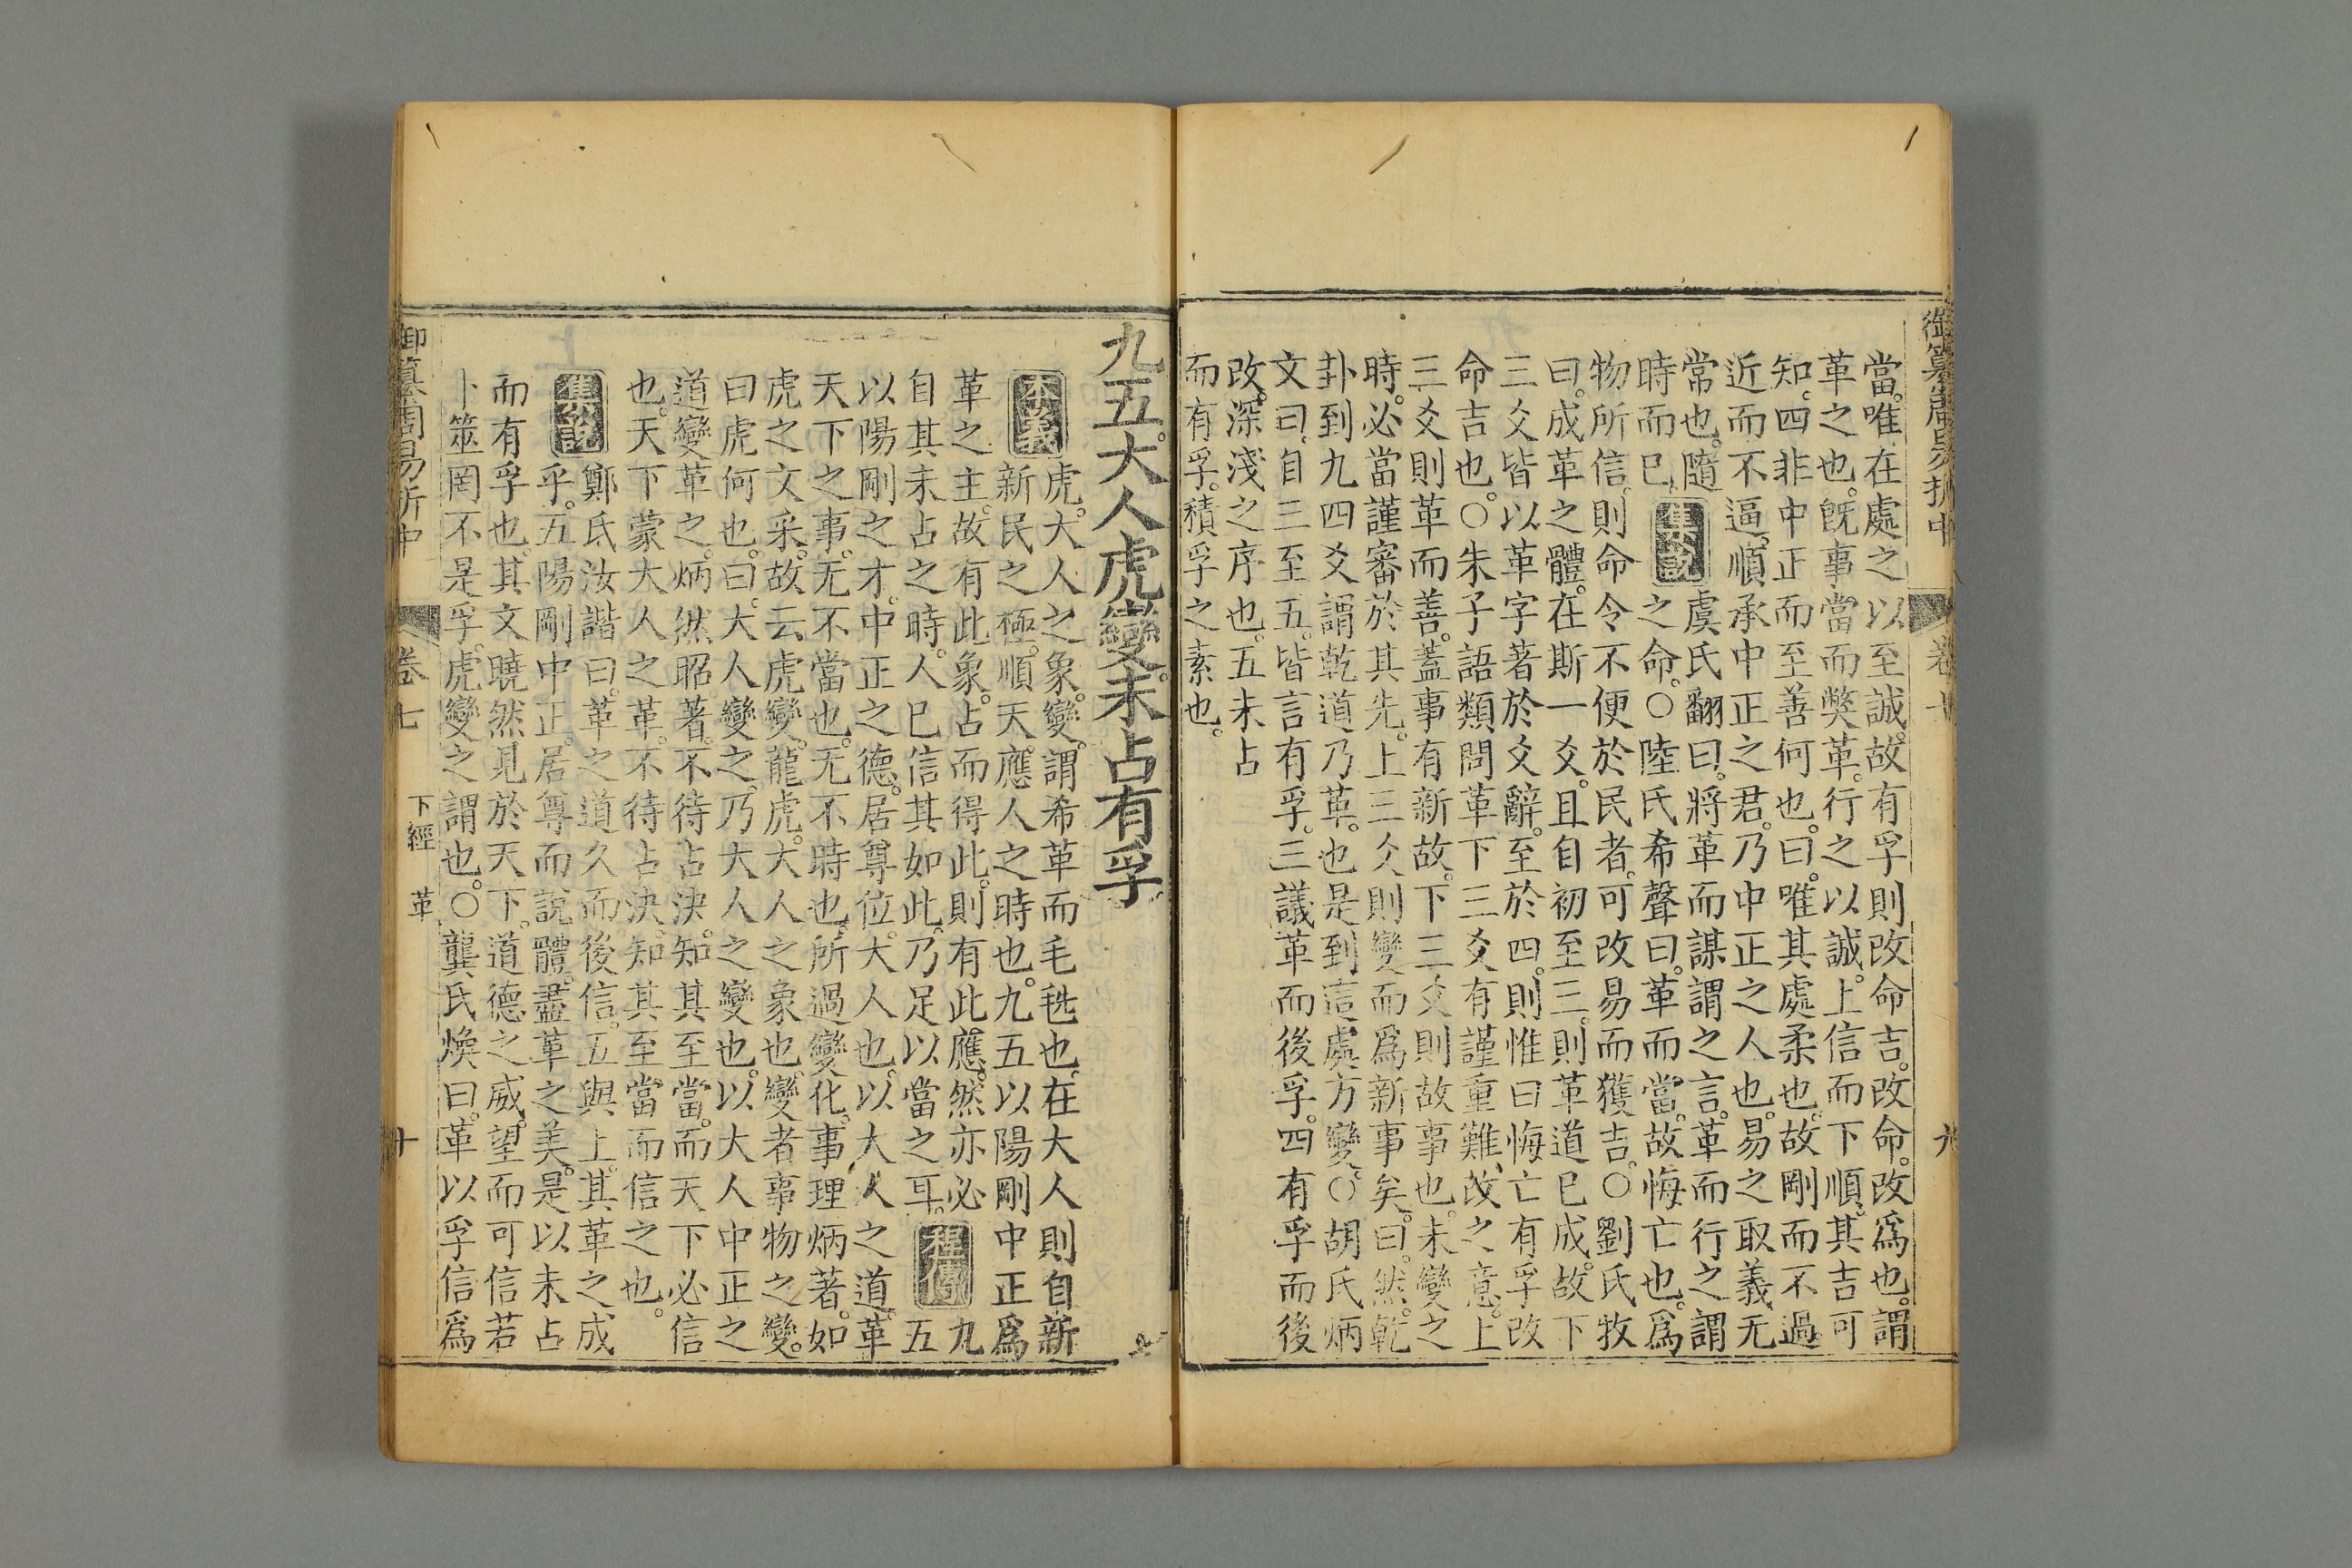 御纂周易折中 卷七 九
當。唯在處之以至誠。故有孚則改命吉。改命。改爲也。謂
革之也。旣事當而弊革。行之以誠。上信而下順。其吉可
知。四非中正而至善何也。曰。唯其處柔也。故剛而不過。
近而不逼。順承中正之君。乃中正之人也。易之取義无
常也。隨
時而已
集說
虞氏翻曰。將革而謀謂之言。革而行之謂
之命。○陸氏希聲曰。革而當。故悔亡也。爲
物所信。則命令不便於民者。可改易而獲吉。○劉氏牧
曰。成革之體。在斯一爻。且自初至三。則革道已成。故下
三爻皆以革字著於爻辭。至於四。則惟曰悔亡有孚改
命吉也。○朱子語類問革下三爻有謹重難改之意。上
三爻則革而善。蓋事有新故。下三爻則故事也。未變之
時。必當謹審於其先。上三爻則變而爲新事矣。曰。然。乾
卦到九四爻謂乾道乃革。也是到這處方變。○胡氏炳
文曰。自三至五。皆言有孚。三議革而後孚。四有孚而後
改。深淺之序也。五未占
而有孚。積孚之素也。
九五。大人虎變。未占有孚。
本義
虎。大人之象。變。謂希革而毛毨也。在大人則自新
新民之極。順天應人之時也。九五以陽剛中正爲
革之主。故有此象。占而得此。則有此應。然亦必
自其未占之時。人已信其如此。乃足以當之耳。
程傳
九
五
以陽剛之才。中正之德。居尊位。大人也。以大人之道。革
天下之事。无不當也。无不時也。所過變化。事理炳著。如
虎之文采。故云虎變。龍虎。大人之象也。變者事物之變。
曰虎何也。曰。大人變之。乃大人之變也。以大人中正之
道變革之。炳然昭著。不待占決。知其至當。而天下必信
也。天下蒙大人之革。不待占決。知其至當而信之也。
集說
鄭氏汝諧曰。革之道久而後信。五與上。其革之成
乎。五陽剛中正。居尊而說體。盡革之美。是以未占
而有孚也。其文曉然見於天下。道德之威。望而可信若
卜筮罔不是孚。虎變之謂也。○龔氏煥曰。革以孚信爲
御纂周易折中 卷七 下經 革 十